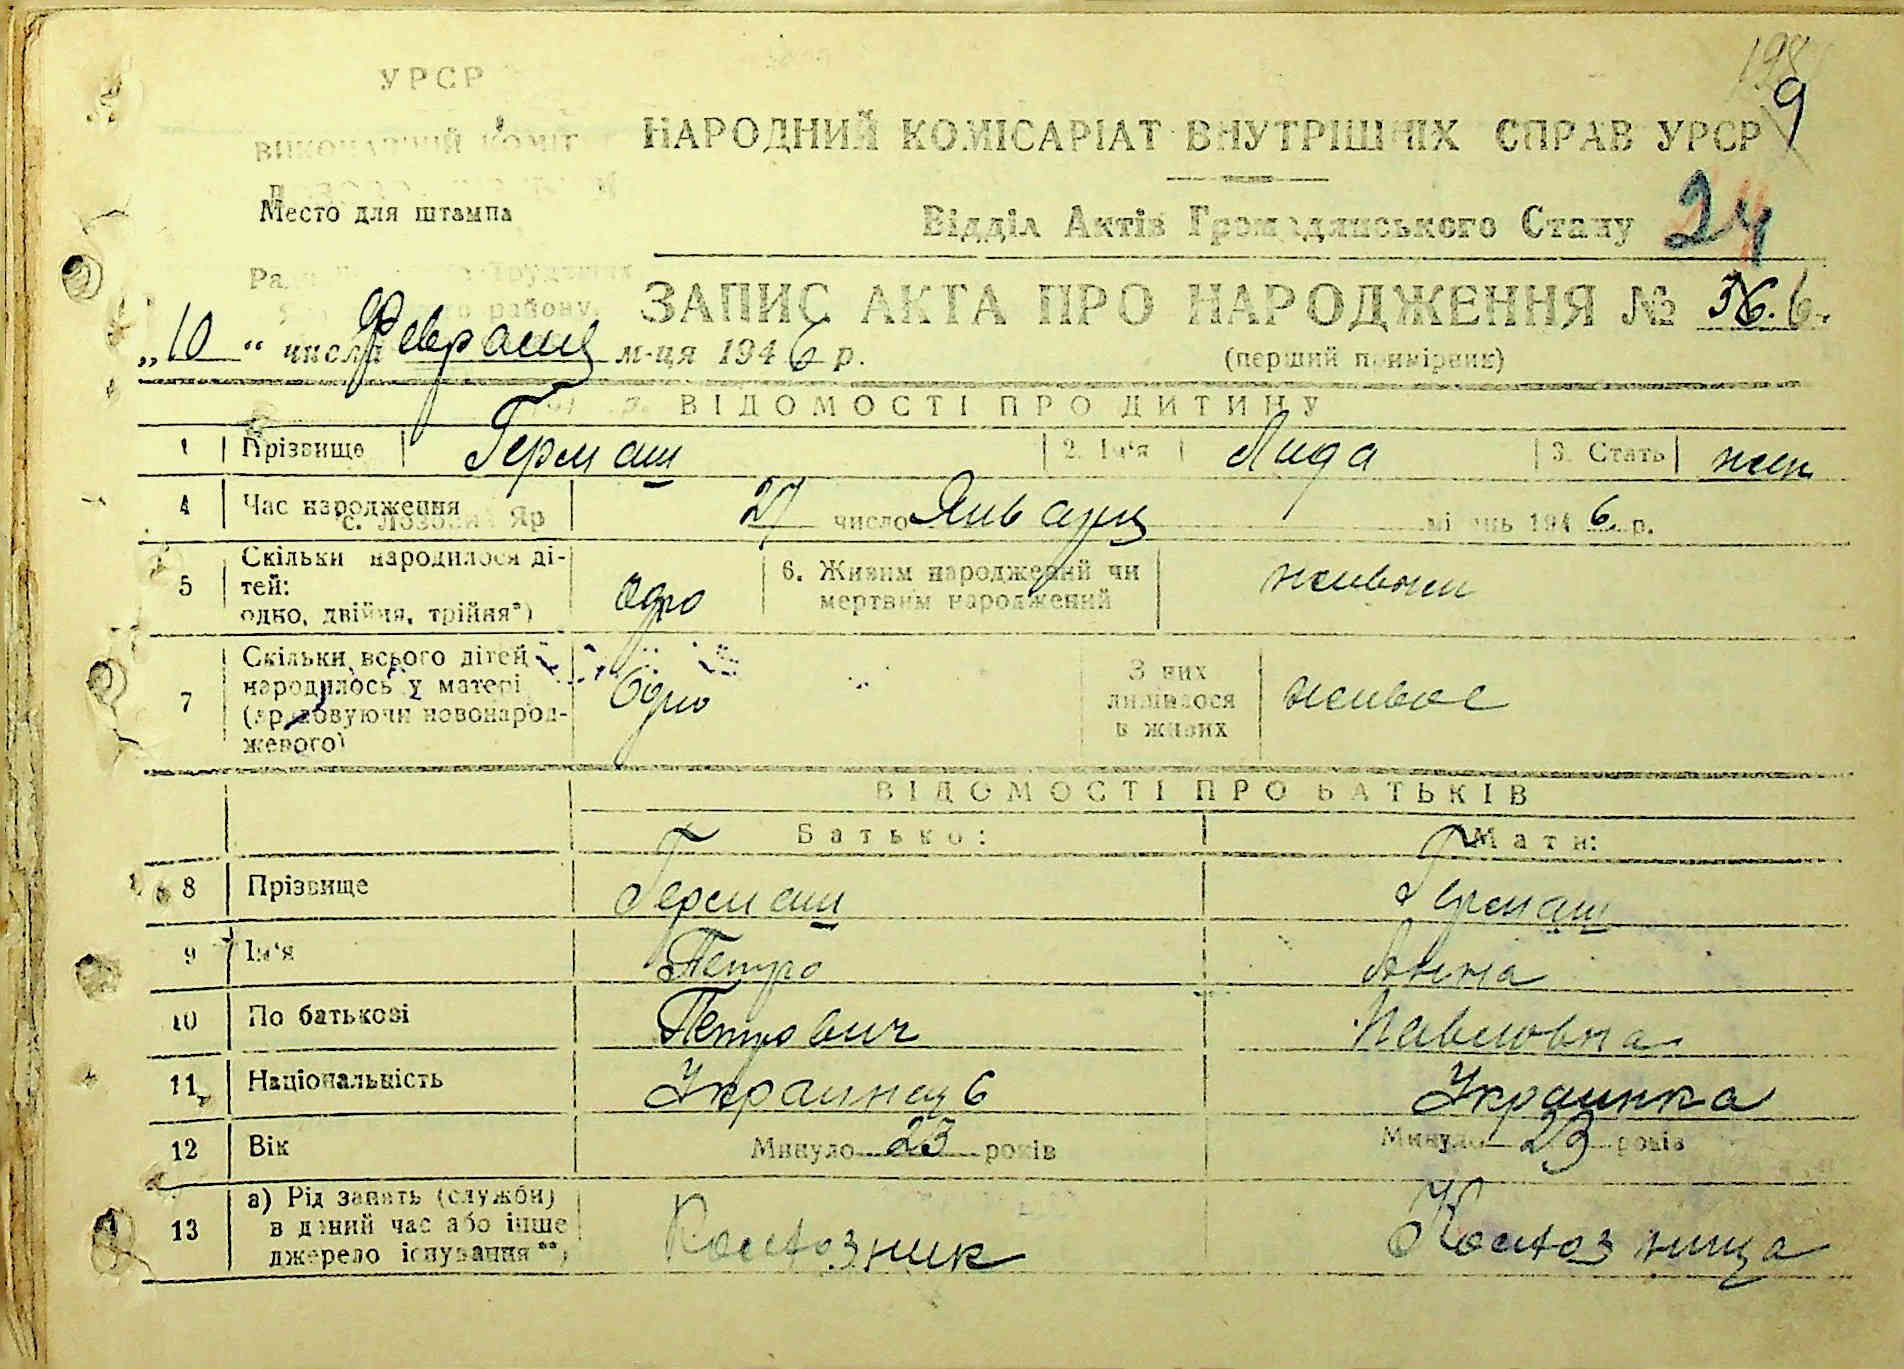 УРСР
ВИКОНАВЧИЙ КОМІТ
Место для штампа
району,
198
9
НАРОДНИЙ КОМІСАРІАТ ВНУТРІШНІХ СПРАВ УРСР
Відділ Актів Громадянського Стану 24
ЗАПИС АКТА ПРО НАРОДЖЕННЯ № 36. 6.
„10“ числа Февраля м-ця 1946 р.
(перший примірник)
ВІДОМОСТІ ПРО ДИТИНУ
1 Прізвище Гермаш 2. Ім'я Лида 3. Стать жен
4 Час народження 27 число Января місяць 1946 р.
с. Лозовий Яр
5 Скільки народилося ді-
тей:
одно, двійня, трійня*) Одно 6. Живим народжений чи
мертвим народжений живым
7 Скільки всього дітей
народилось у матері
(враховуючи новонарод-
женого) Одно З них
лишилося
в живих живое
ВІДОМОСТІ ПРО БАТЬКІВ
Батько: Мати:
8 Прізвище Гермаш Гермаш
9 Ім'я Петро Анна
10 По батькові Петрович Павловна
11 Національність Украинець Украинка
12 Вік Минуло 23 років Минуло 23 років
13 а) Рід занять (служби)
в даний час або інше
джерело існування**) Колхозник Колхозница